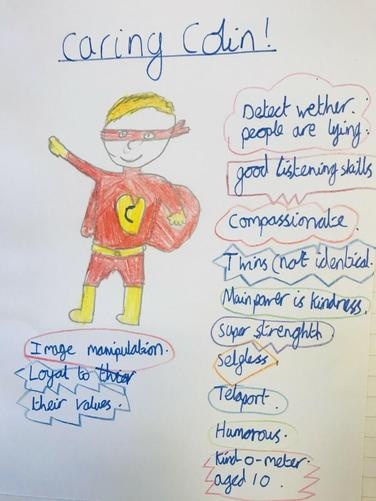 Caring Colin!
Detect wether
people are lying.
good listening skills
C
Compassionate.
Twins (not identical.
Main power is kindness.
Super strenghth
Image manipulation.
Loyal to thier
their values.
Selgless
Teleport.
Humorous.
Kind-o-meter.
aged 10.